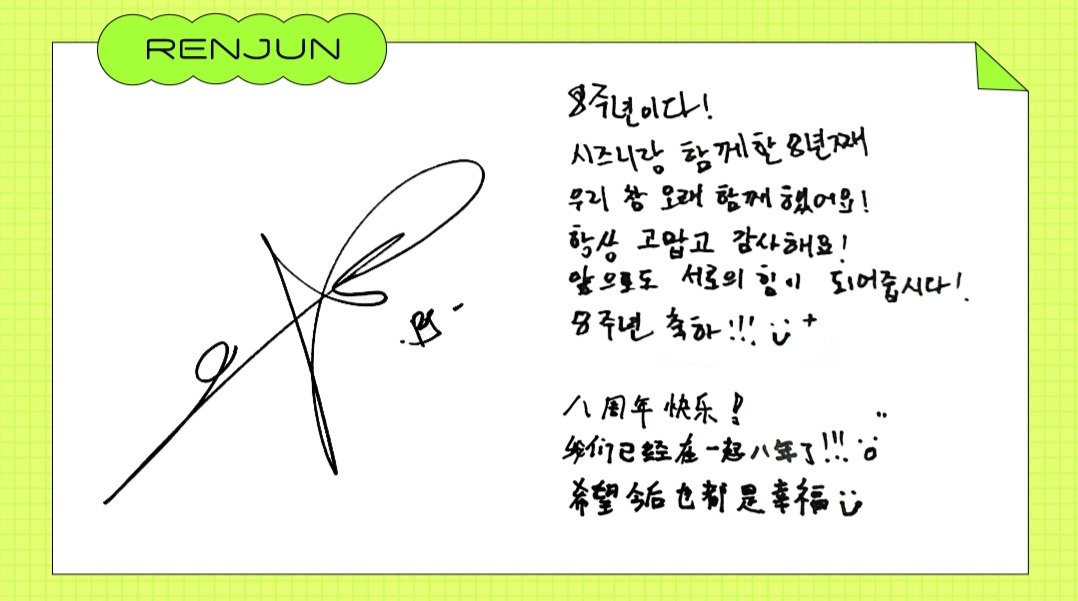 RENJUN
8주년이다!
시즈니랑 함께한 8년째
우리 참 오래 함께 했어요!
항상 고맙고 감사해요!
앞으로도 서로의 힘이 되어줍시다!
8주년 축하!!!
RJ
八周年快乐!
我们已经在一起八年了!!!
希望今后也都是幸福